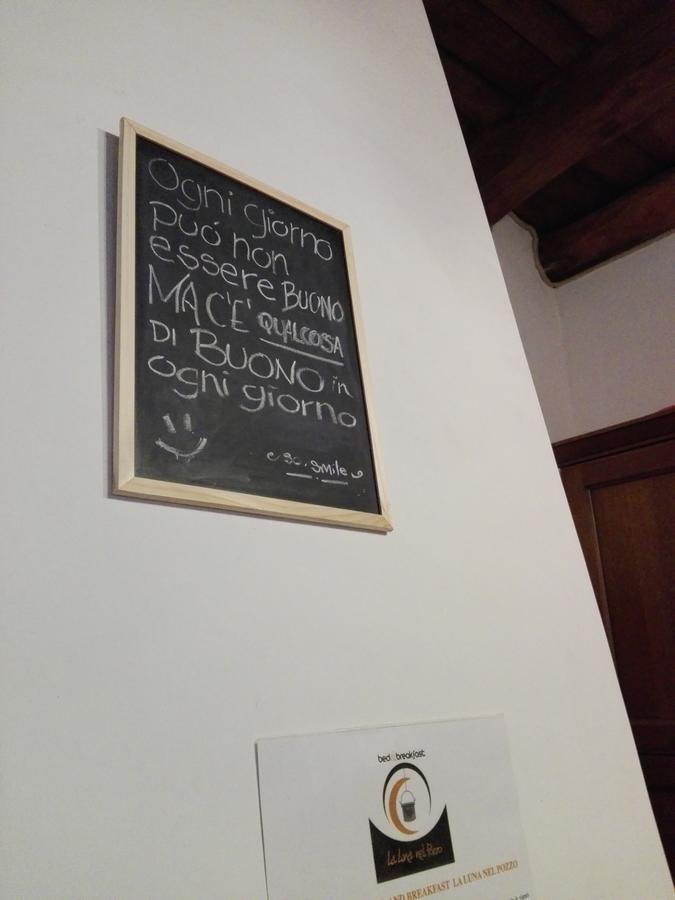 Ogni giorno
può non
essere BUONO
MA C'E' QUALCOSA
DI BUONO in
ogni giorno
so, smile
bed&breakfast
La Luna nel Pozzo
AND BREAKFAST LA LUNA NEL POZZO